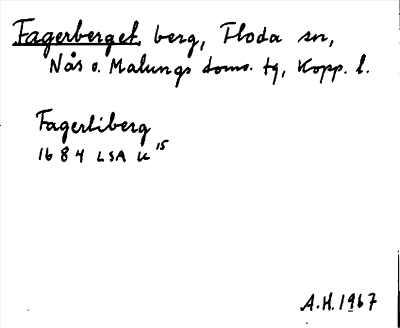 Fagerberget, berg, Floda sn,
Nås o. Malungs doms. tg, Kopp. l.
Fagerliberg
1684 LSA K 15
A.H. 1967